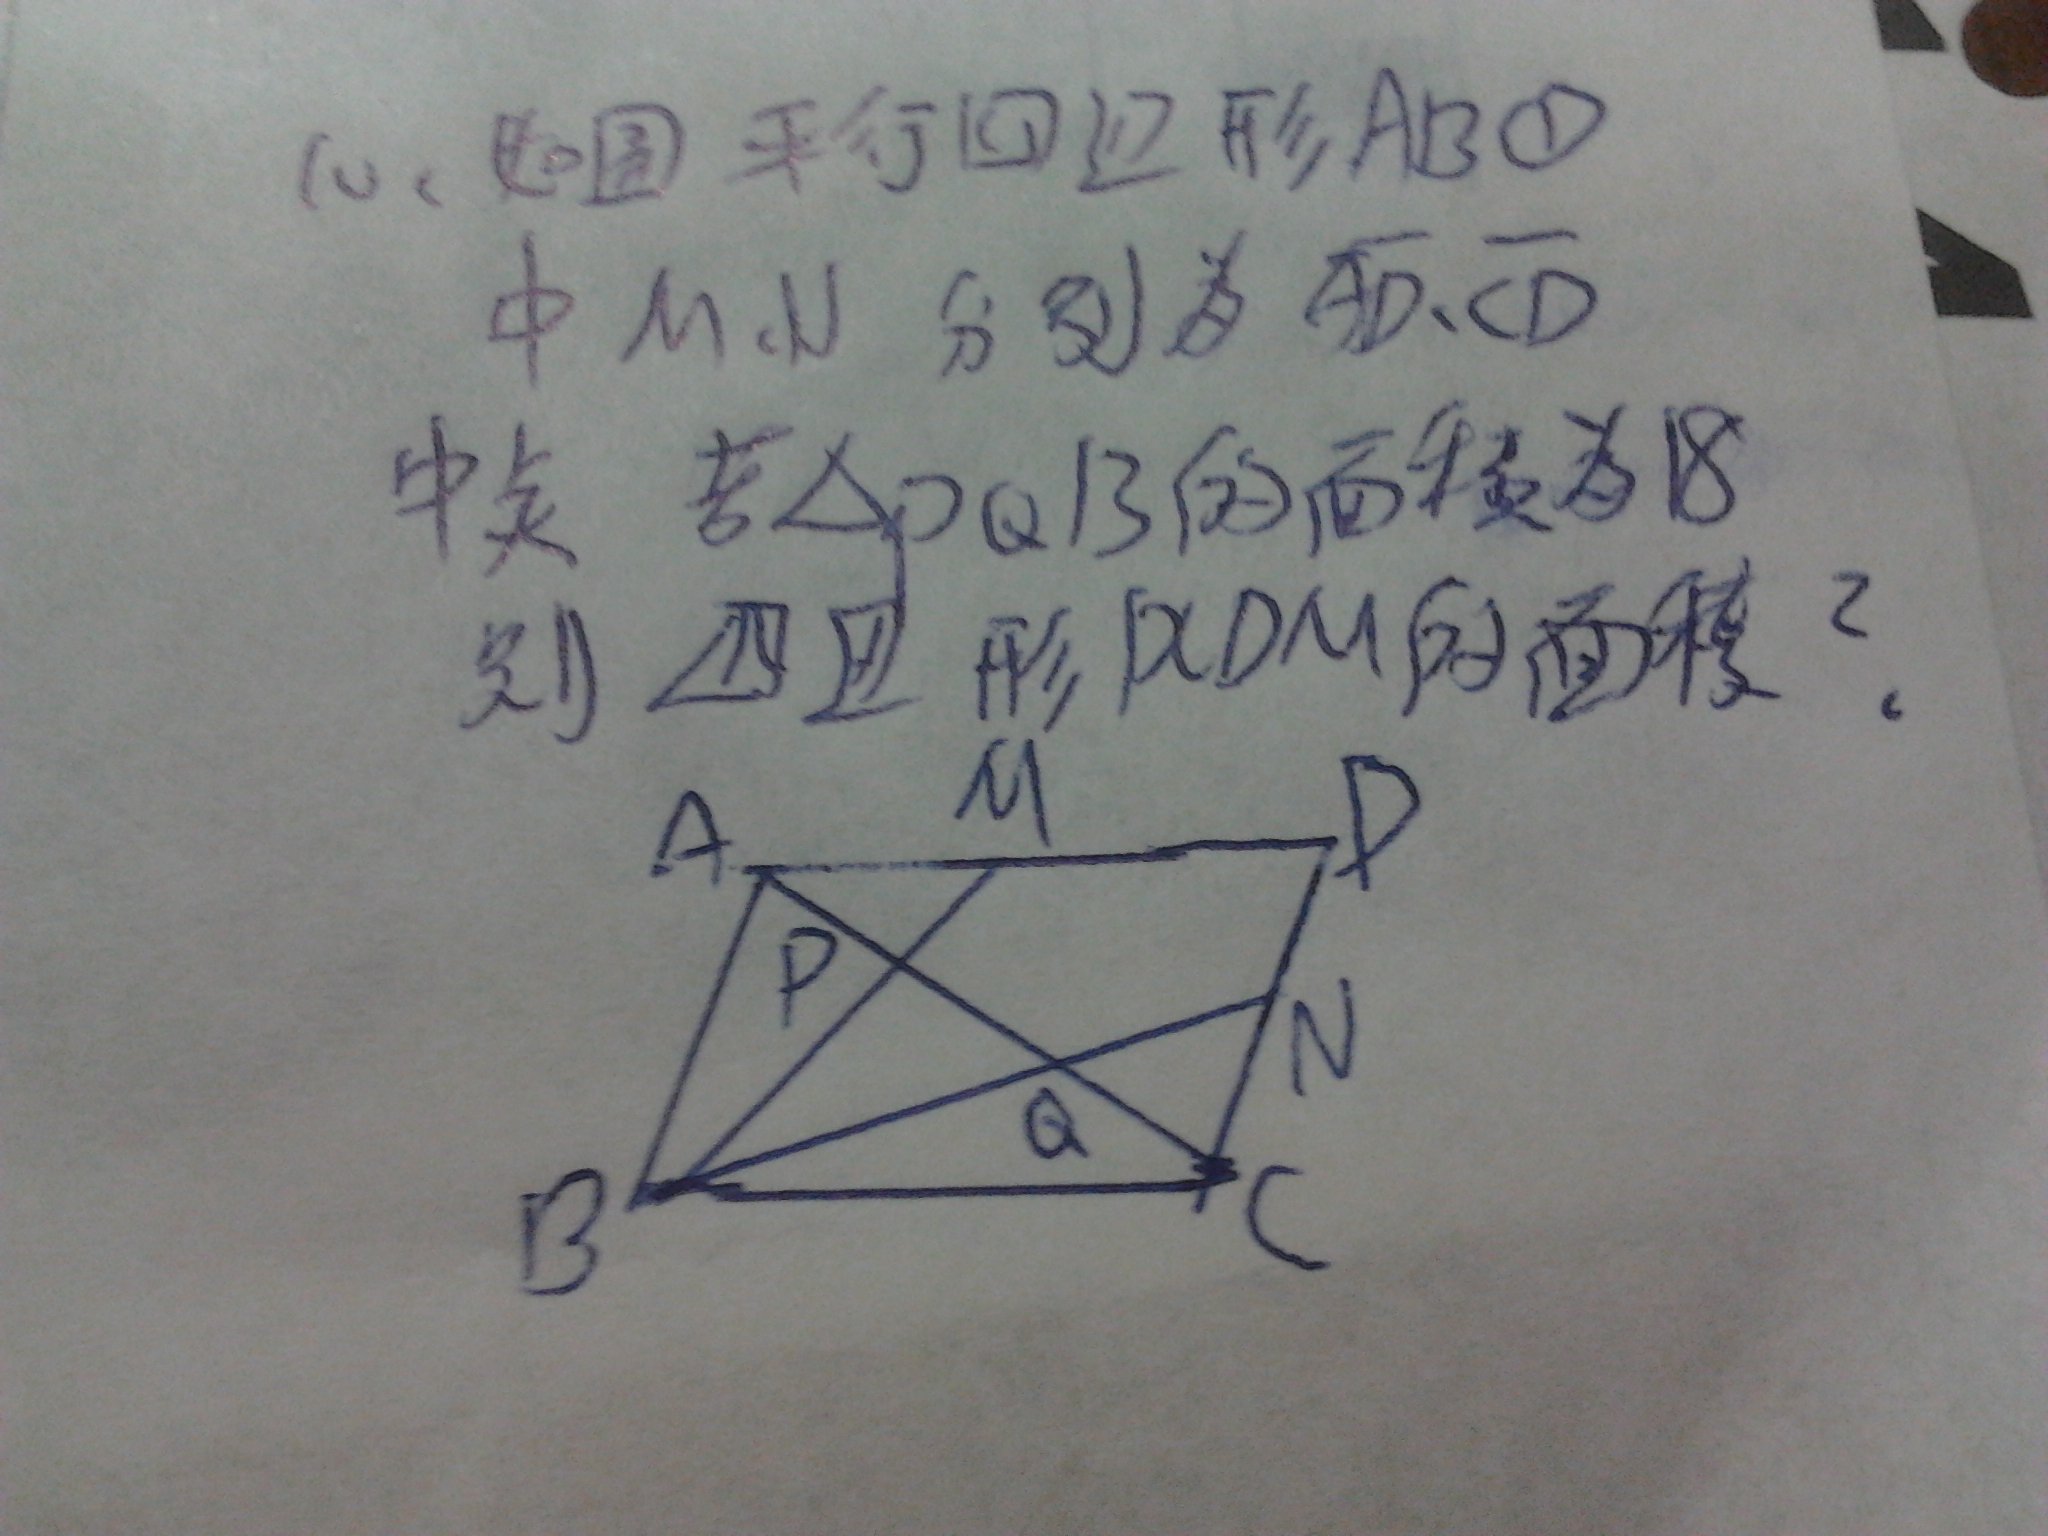 10、如图 平行四边形ABCD
中 M、N 分别为 AD、CD
中点 若△PQB的面积为18
则 四边形PCDM的面积?
M
A
D
P
N
Q
B
C